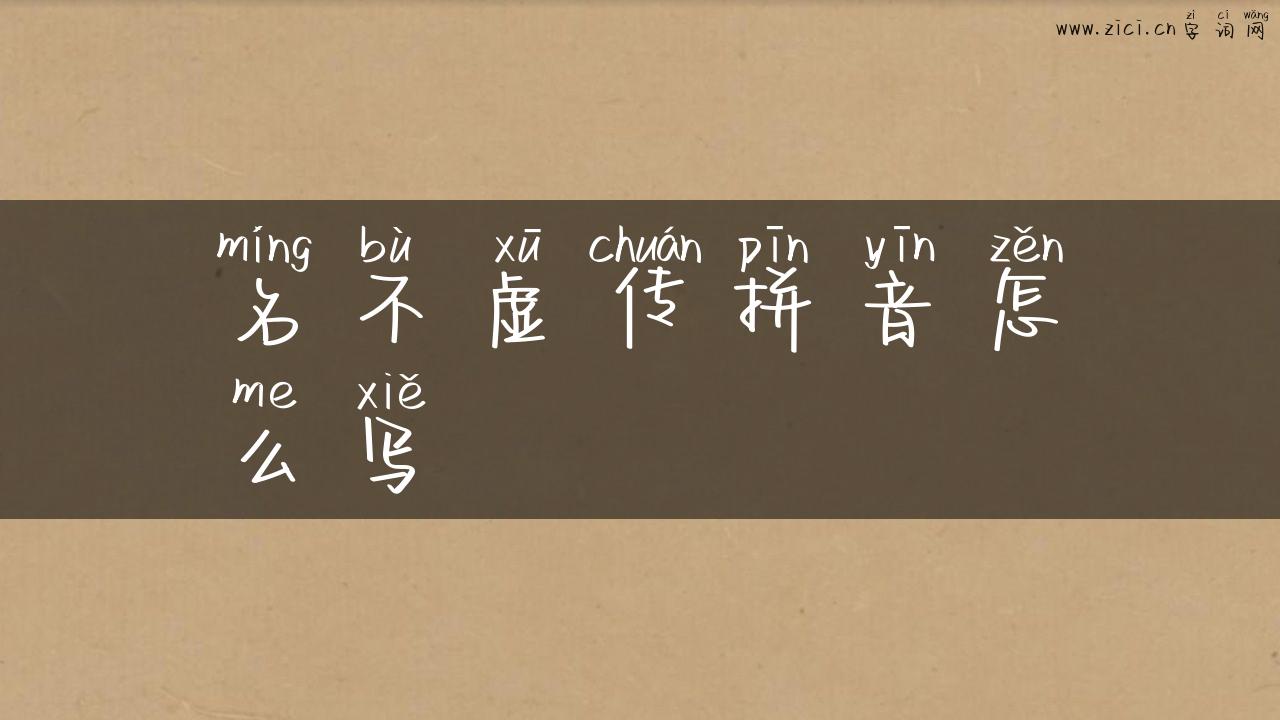 zì cí wǎng
www.zici.cn 字词网
míng bù xū chuán pīn yīn zěn
名不虚传拼音怎
me xiě
么写